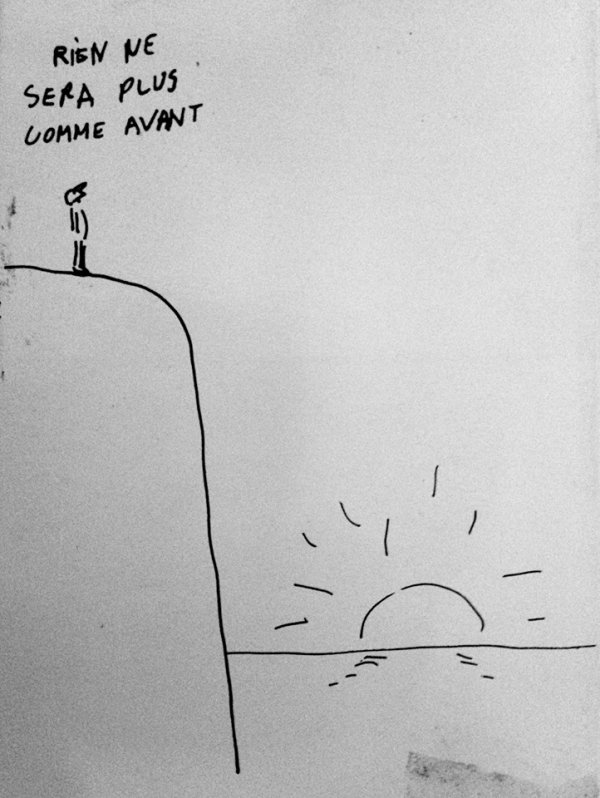 RIEN NE
SERA PLUS
COMME AVANT